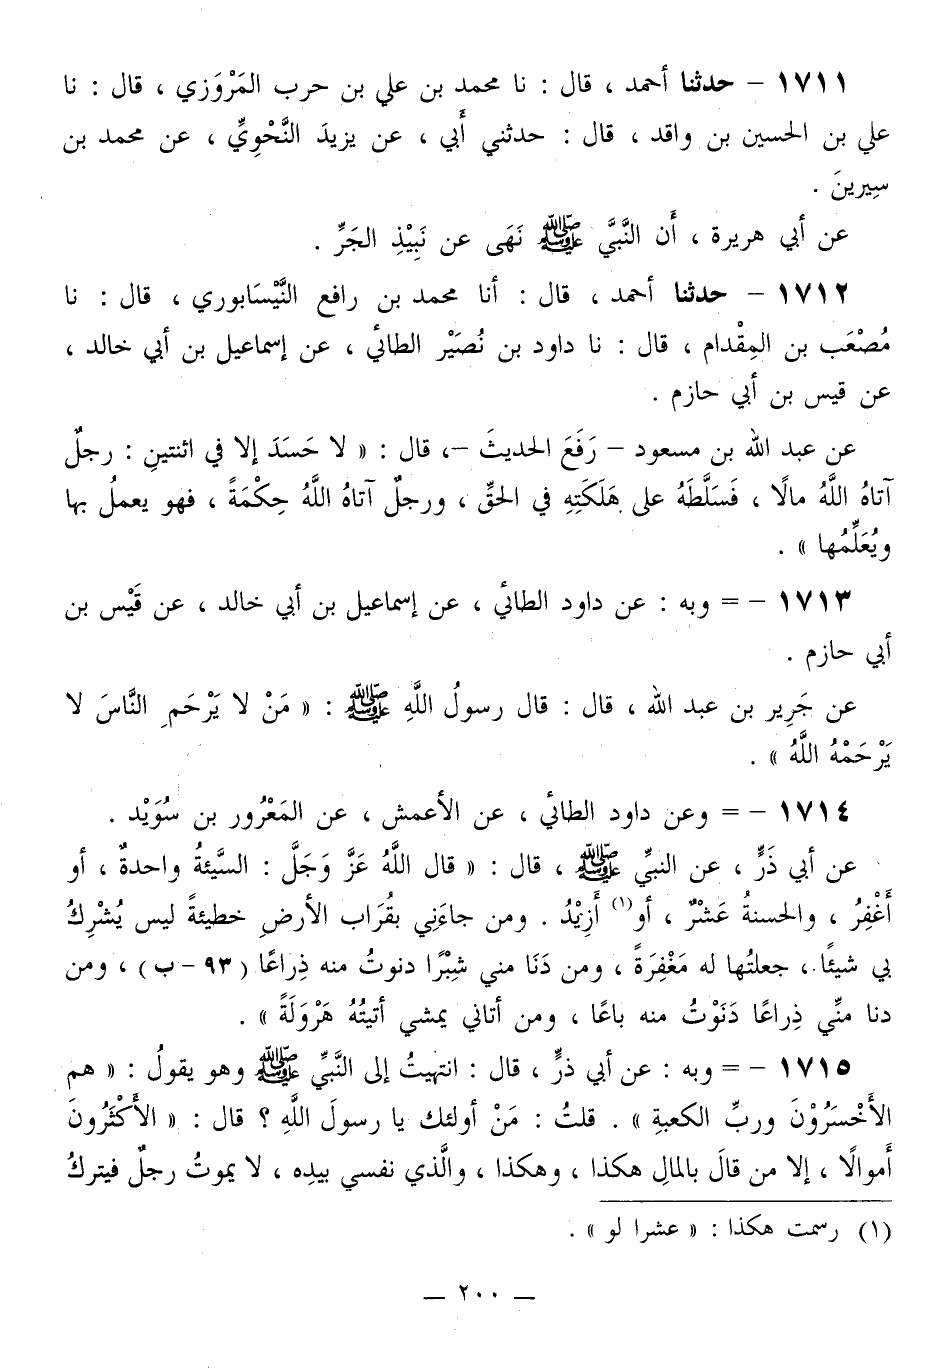 ١٧١١ – حدثنا أحمد ، قال : نا محمد بن علي بن حرب المَرْوَزي ، قال : نا
علي بن الحسين بن واقد ، قال : حدثني أَبي ، عن يزيدَ النَّحْوِيِّ ، عن محمد بن
سِيرينَ .
عن أبي هريرة ، أَن النَّبيَّ ﷺ نَهَى عن نَبِيْذِ الجَرِّ .
١٧١٢ – حدثنا أحمد ، قال : أنا محمد بن رافع النَّيْسَابوري ، قال : نا
مُصْعَب بن المِقْدام ، قال : نا داود بن نُصَيْر الطائي ، عن إسماعيل بن أبي خالد ،
عن قيس بن أبي حازم .
عن عبد الله بن مسعود – رَفَعَ الحديثَ –، قال : « لا حَسَدَ إلا في اثنتينِ : رجلٌ
آتاهُ اللَّهُ مالًا ، فَسَلَّطَهُ على هَلَكَتِهِ في الحقِّ ، ورجلٌ آتاهُ اللَّهُ حِكْمَةً ، فهو يعملُ بها
ويُعَلِّمُها » .
١٧١٣ – = وبه : عن داود الطائي ، عن إسماعيل بن أبي خالد ، عن قَيْس بن
أبي حازم .
عن جَرِير بن عبد الله ، قال : قال رسولُ اللَّهِ ﷺ : « مَنْ لا يَرْحَمِ النَّاسَ لا
يَرْحَمْهُ اللَّهُ » .
١٧١٤ – = وعن داود الطائي ، عن الأعمش ، عن المَعْرُور بن سُوَيْد .
عن أبي ذَرٍّ ، عن النبيِّ ﷺ ، قال : « قال اللَّهُ عَزَّ وَجَلَّ : السَّيئةُ واحدةٌ ، أو
أَغْفِرُ ، والحسنةُ عَشْرٌ ، أو(١) أَزِيْدُ . ومن جاءَنِي بقُرَاب الأرضِ خطيئةً ليس يُشْرِكُ
بي شيئًا ، جعلتُها له مَغْفِرَةً ، ومن دَنَا مني شِبْرًا دنوتُ منه ذِراعًا ( ٩٣ – ب ) ، ومن
دنا منِّي ذِراعًا دَنَوْتُ منه باعًا ، ومن أتاني يمشي أتيتُهُ هَرْوَلَةً » .
١٧١٥ – = وبه : عن أبي ذرٍّ ، قال : انتهيتُ إلى النَّبيِّ ﷺ وهو يقولُ : « هم
الأَخْسَرُوْنَ وربِّ الكعبةِ » . قلتُ : مَنْ أولئك يا رسولَ اللَّهِ ؟ قال : « الأَكْثَرُونَ
أَموالًا ، إلا من قالَ بالمالِ هكذا ، وهكذا ، والَّذي نفسي بيدِه ، لا يموتُ رجلٌ فيتركُ
(١) رسمت هكذا : « عشرا لو » .
— ٢٠٠ —